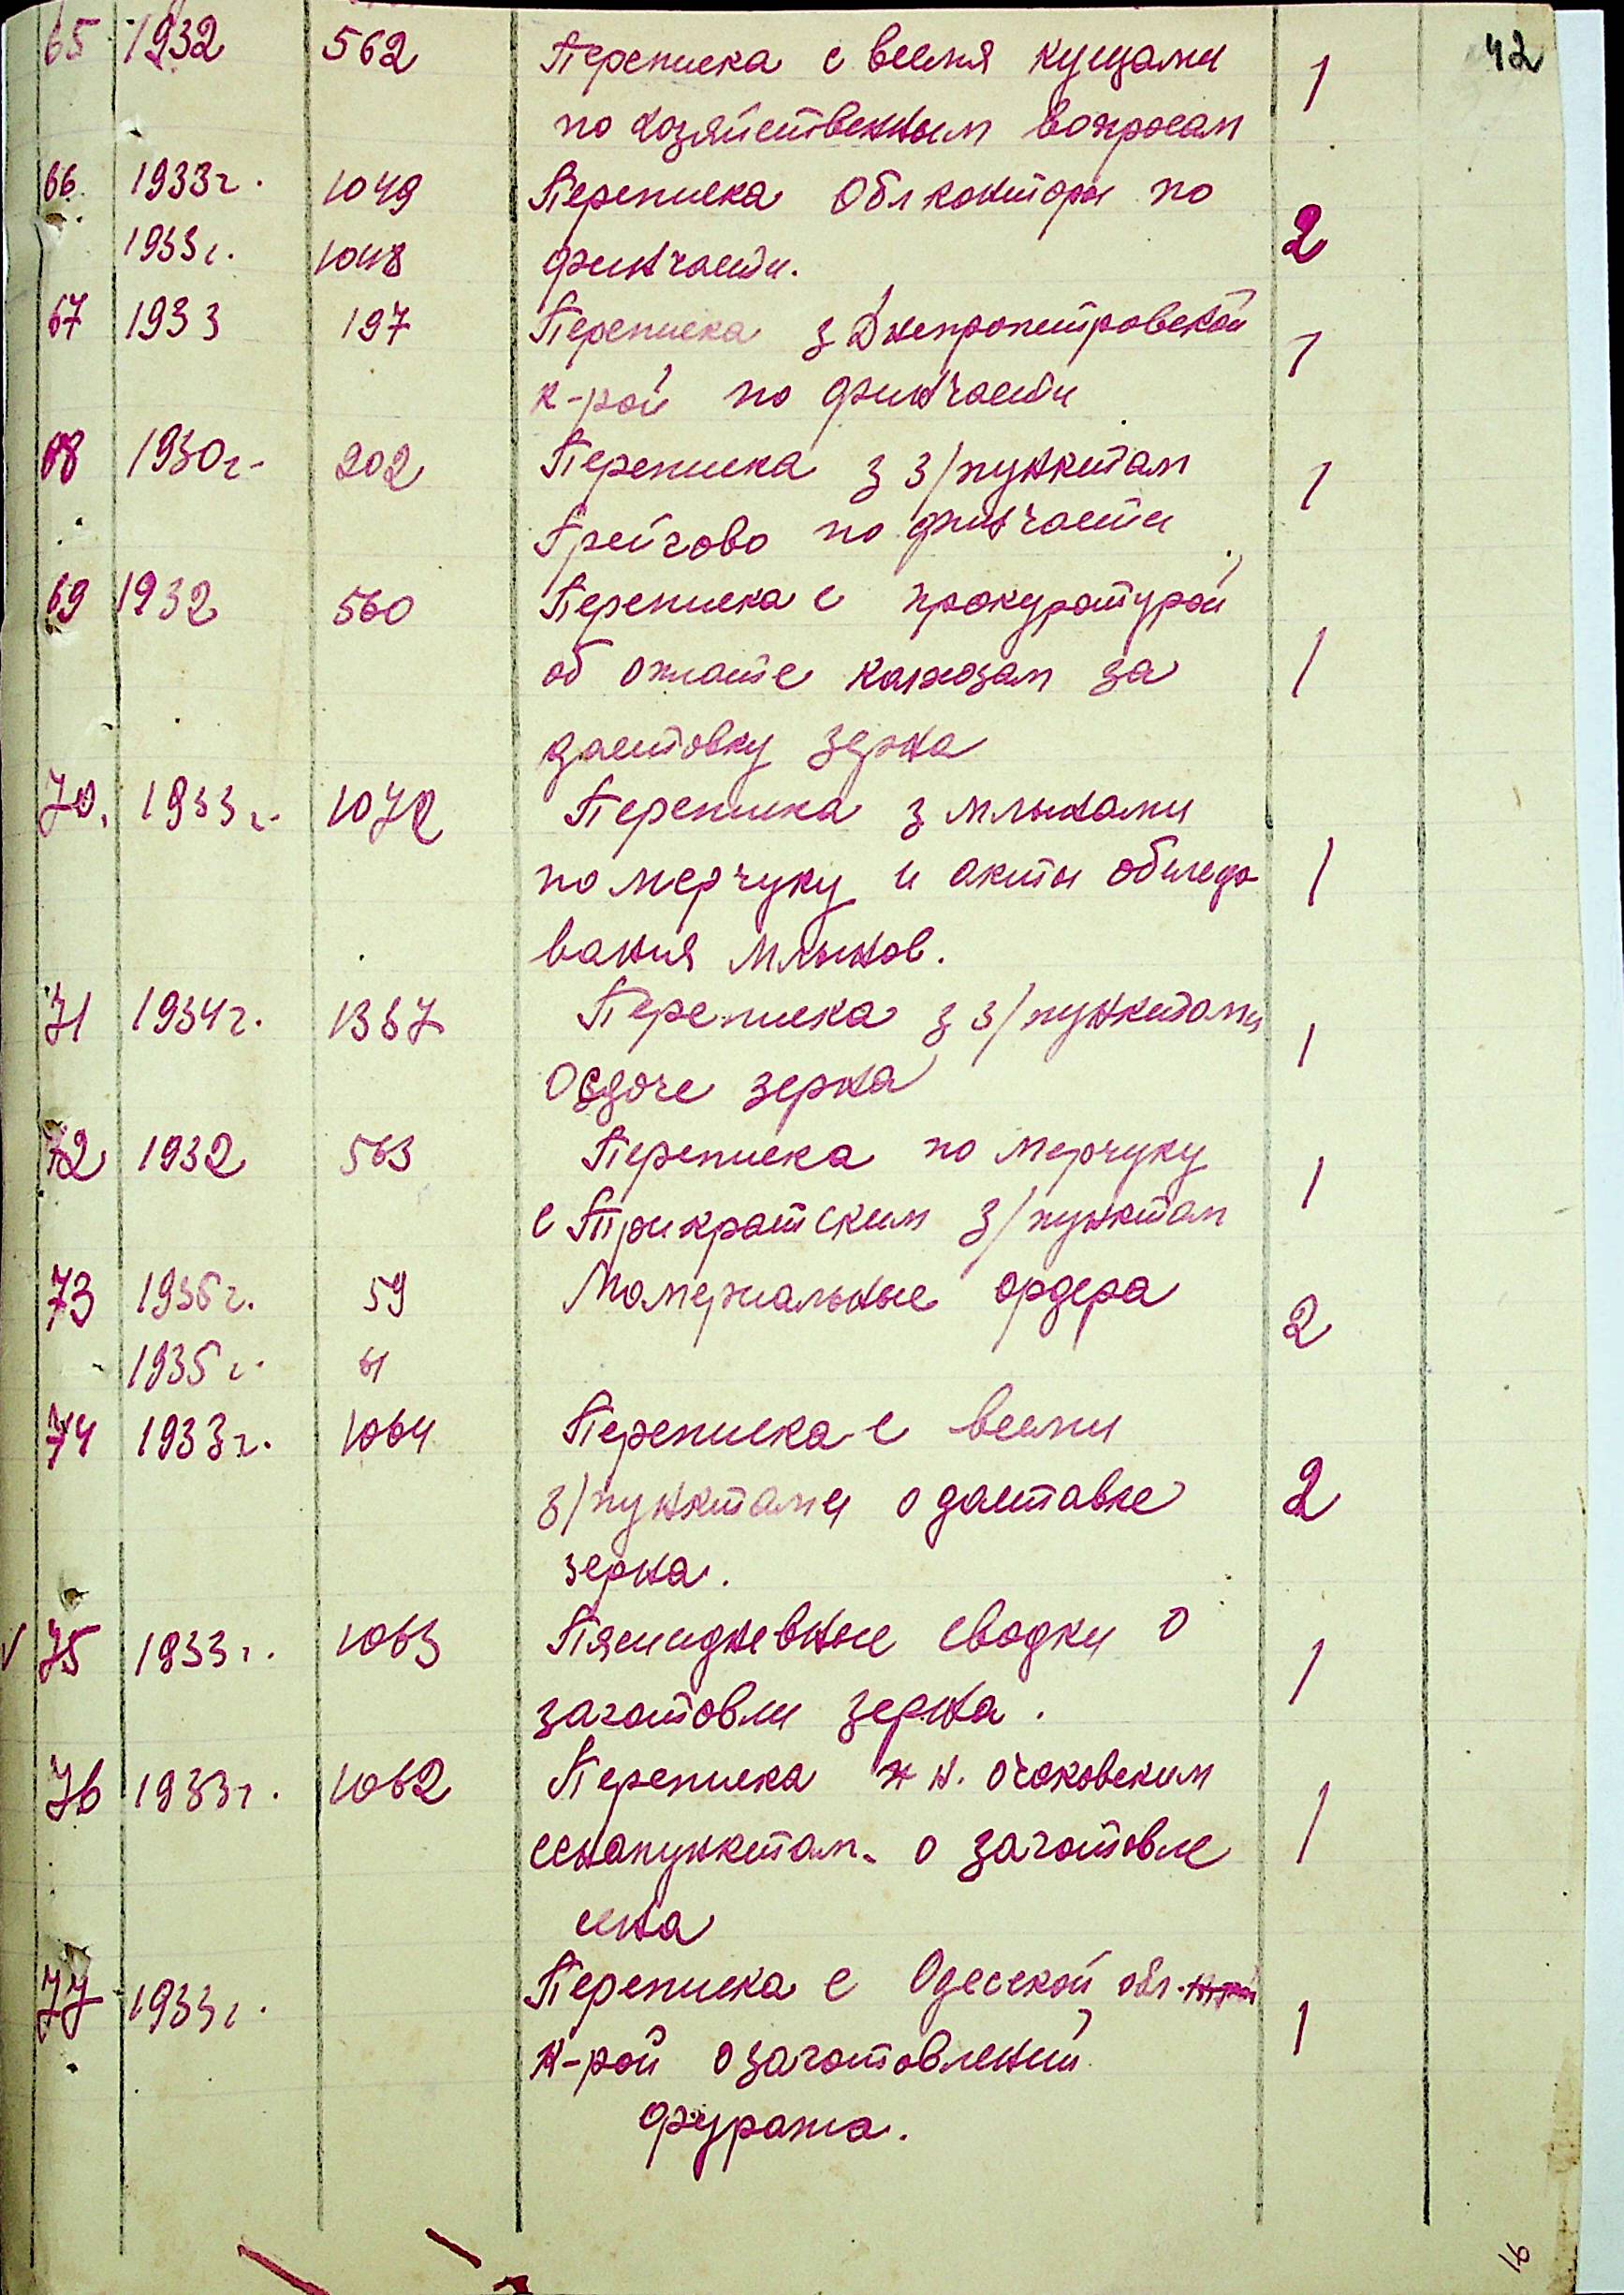 42
65 1932 562 Переписка с всемя кущами 1
по хозяйственным вопросам
66. 1933г. 1049 Переписка Облконторы по 2
1933г. 1048 финчасти.
67 1933 197 Переписка з Днепропетровской 1
к-рой по финчасти
68 1930г. 202 Переписка з з/пунктам 1
Грейгово по финчасти
69 1932 560 Переписка с прокуратурой
об оплате колхозам за 1
доставку зерна
70. 1933г. 1072 Переписка з млынами
по мерчуку и акты обследо 1
вания млынов.
71 1934г. 1367 Переписка з з/пунктами 1
О сдаче зерна
72 1932 563 Переписка по мерчуку 1
с Трикратским з/пунктам
73 1936г. 59 Материальные ордера 2
1935г. 61
74 1933г. 1064 Переписка с всеми
з/пунктами о доставке 2
зерна.
√ 75 1933г. 1063 Пятидневные сводки о 1
заготовли зерна.
76 1933г. 1062 Переписка н. Очаковским
сенапунктам. о заготовле 1
сена
77 1933г. Переписка с Одесской обл. 1
к-рой о заготовлений
фуража.
16